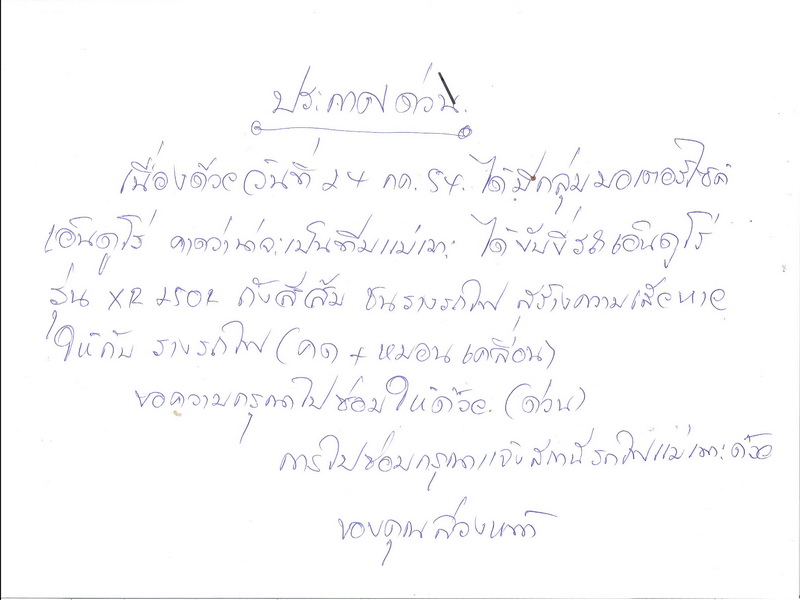 ประกาศด่วน.
เนื่องด้วย วันที่ 24 กค. 54. ได้มีกลุ่มมอเตอร์ไซค์
เอ็นดูโร่ คาดว่าน่าจะเป็นทีมแม่เมาะ ได้ขับขี่รถเอ็นดูโร่
รุ่น XR 250R ถังสีส้ม ชนรางรถไฟ สร้างความเสียหาย
ให้กับ รางรถไฟ (คด + หมอนเคลื่อน)
ขอความกรุณาไปซ่อมให้ด้วย. (ด่วน)
การไปซ่อมกรุณาแจ้งสถานีรถไฟแม่เมาะด้วย
ขอบคุณล่วงหน้า